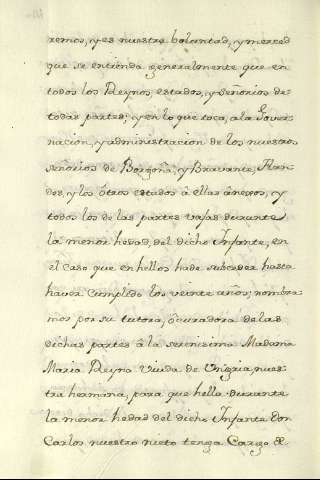 remos, y es nuestra boluntad, y merced
que se entienda generalmente que en
todos los Reynos, estados, y señorios de
todas partes; y en lo que toca, a la Gover-
nacion, y administracion de los nuestros
señorios de Borgoña, y Bravante, Flan-
des, y los ôtros estados â ellas ânexos, y
todos los de las partes vajas durante
la menor hedad, del dicho Infante, en
el caso que en hellos hade subceder hasta
haver cumplido los veinte años; nombra-
mos por su tutora, ô curadora de las
dichas partes â la serenisima Madama
Maria Reyna viuda de Ungria, nues-
tra hermana, para que hella durante
la menor hedad del dicho Infante Don
Carlos nuestro nieto tenga Cargo &